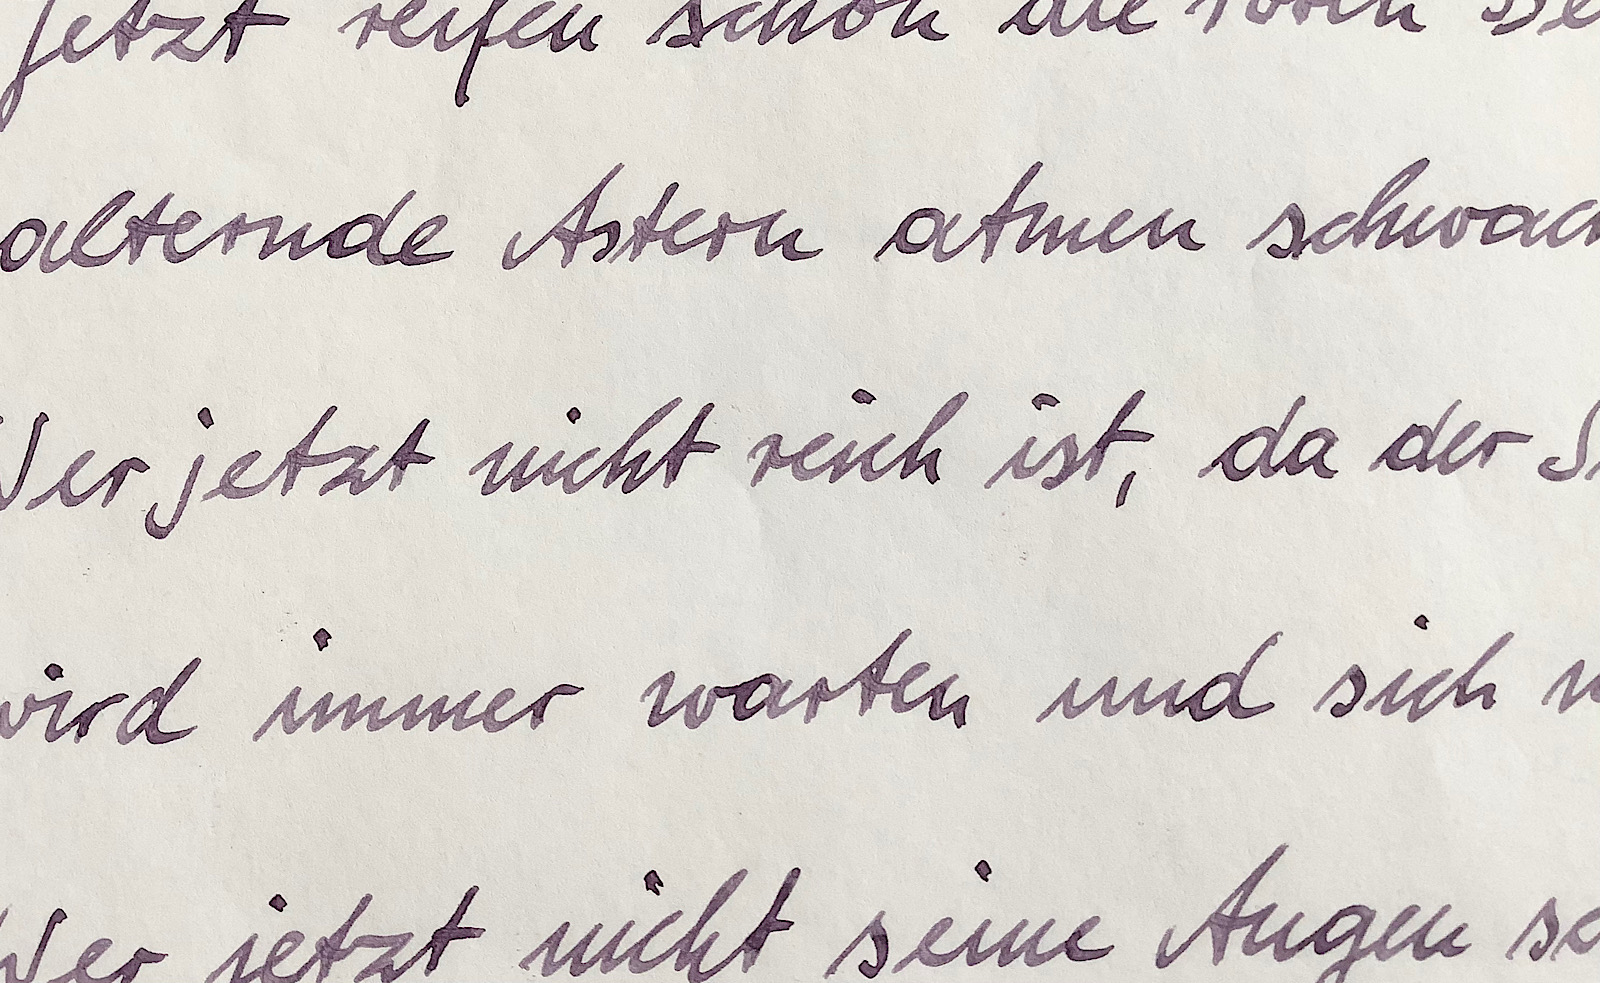 Jetzt reifen schon die roten Be
alternde Astern atmen schwach
Wer jetzt nicht reich ist, da der S
wird immer warten und sich n
Wer jetzt nicht seine Augen sc